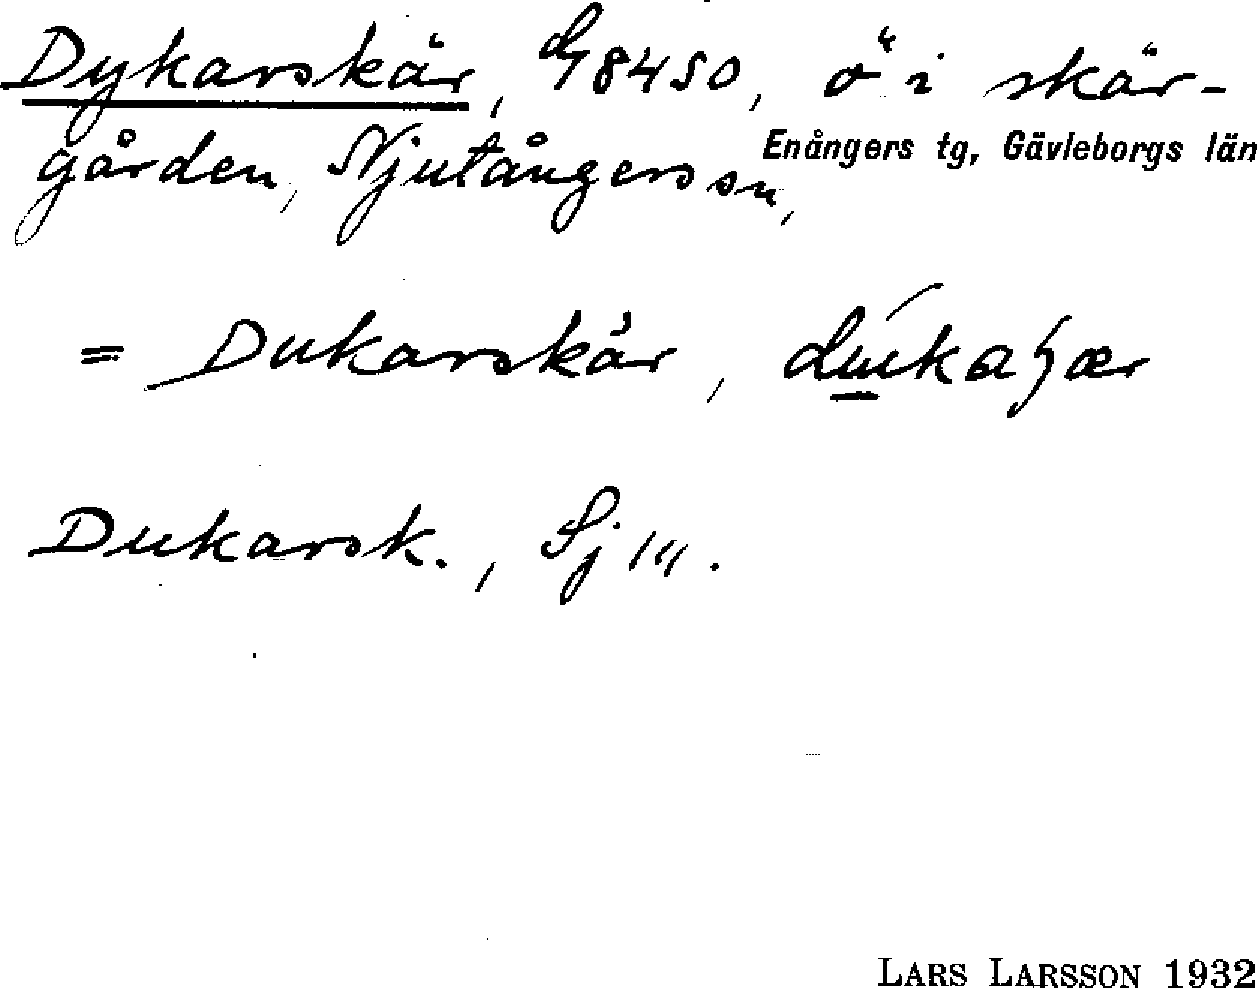 Dykarskär, G8450, ö i skär-
gården, Njutångers sn, Enångers tg, Gävleborgs län
= Dukarskär,
Dukarsk., Sj 111.
LARS LARSSON 1932